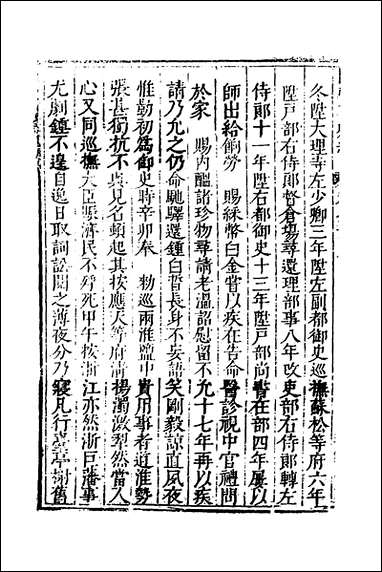 冬陞大理寺左少卿三年陞左副都御史巡撫蘇松等府六年
陞戶部右侍郞督倉場尋還理部事八年改吏部右侍郞轉左
侍郞十一年陞右都御史十三年陞戶部尚書在部四年屢以
師出給餉勞 賜綵幣白金嘗以疾在告命醫診視中官禮問
於家 賜内醞諸珍物尋請老溫詔慰留不允十七年再以疾
請乃允之仍命馳驛還鍾白皙長身不妄語笑剛毅諒直夙夜
惟勤初爲御史時辛卯奉 勑巡兩淮鹽中貴用事者道淮勢
張甚獨抗不與見名頓起其按應天等府淸揚濁激犁然當人
心又同巡撫大臣賑濟民不殍死甲午按浙江亦然浙巨藩事
尤劇鍾不遑自逸日取詞訟閱之薄夜分乃寢凡行臺亭榭舊